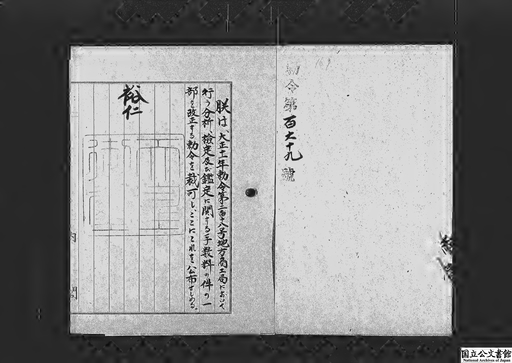 勅令第百六十九號
朕は、大正十一年勅令第三百八号地方商工局において
行う分析、検定及び鑑定に関する手数料の件の一
部を改正する勅令を裁可し、ここにこれを公布せしめる。
裕仁
内閣
国立公文書館
National Archives of Japan